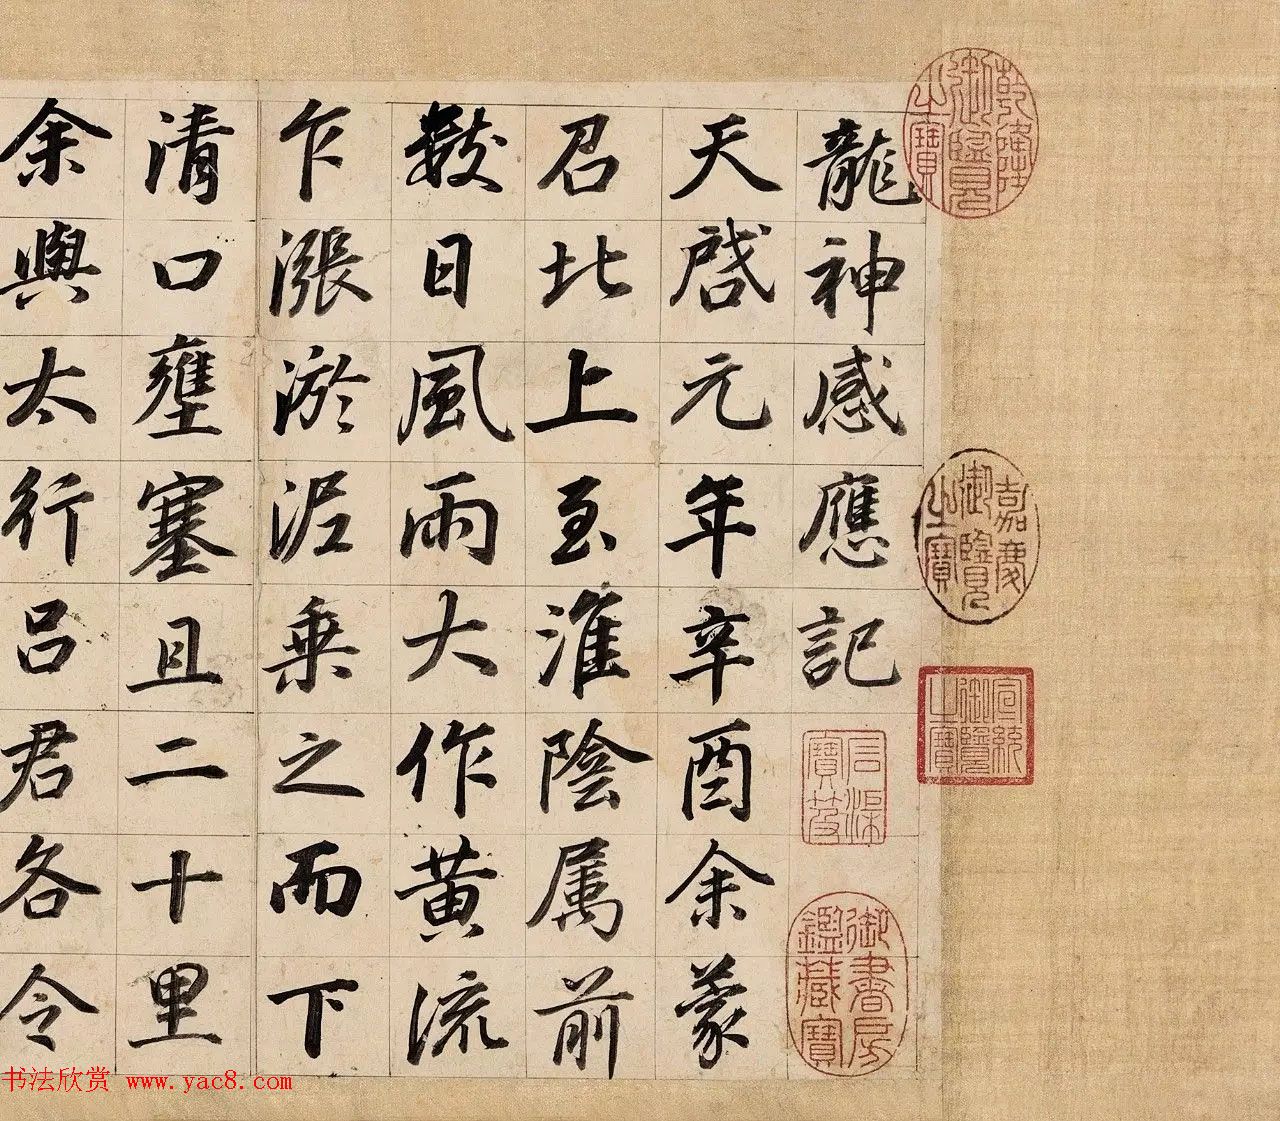 龍神感應記
天啓元年辛酉余蒙
召北上至淮陰属前
數日風雨大作黄流
乍漲淤泥乗之而下
清口壅塞且二十里
余與太行呂君各令
乾隆御覽之寶
嘉慶御覽之寶
宣統御覽之寶
御書房鑑藏寶
书法欣赏 www.yac8.com